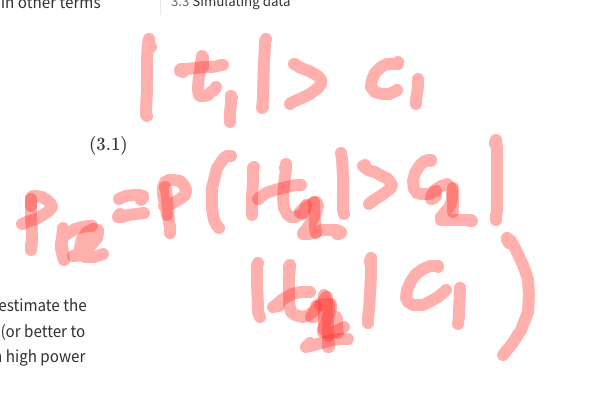 in other terms
3.3 Simulating data
|t₁| > c₁
(3.1)
= p(|t₂| > c₂ |
| c₁)
estimate the
(or better to
high power